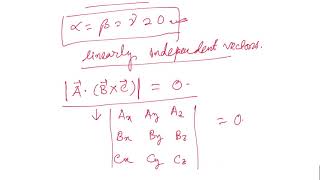 α = β = γ = 0
linearly independent vectors.
|A⃗ · (B⃗ × C⃗)| = 0.
↓ | Ax Ay Az |
| Bx By Bz | = 0.
| Cx Cy Cz |